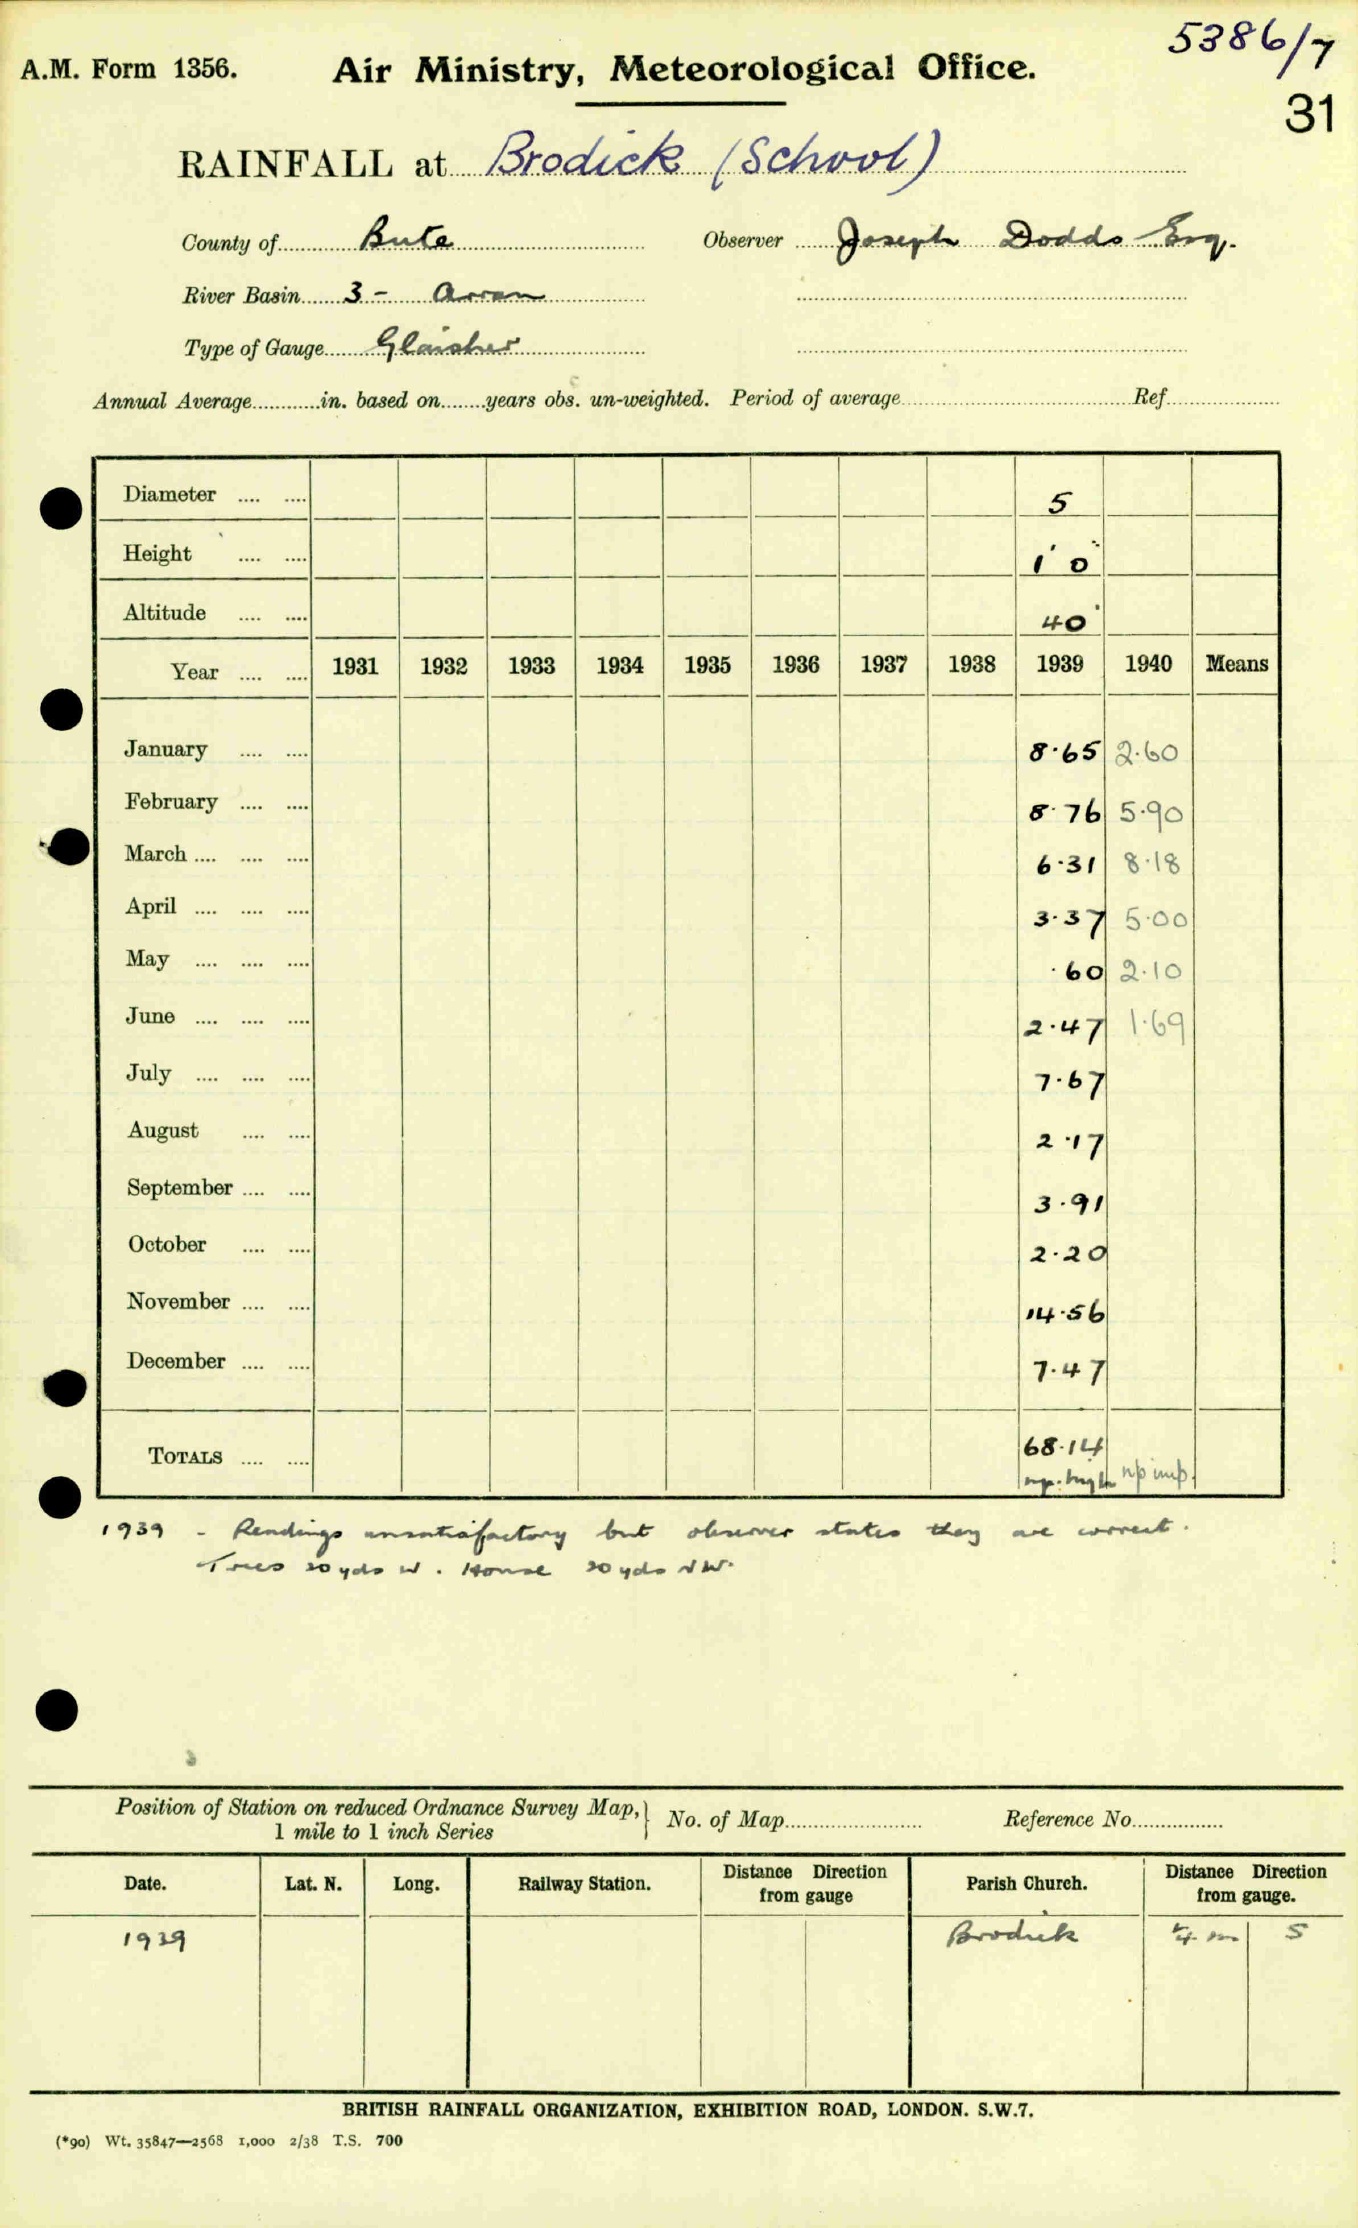 5386/7
A.M. Form 1356. Air Ministry, Meteorological Office.
31
RAINFALL at Brodick (School)
County of Bute Observer Joseph Dodds Esq.
River Basin 3 - Arran
Type of Gauge Glaisher
Annual Average............in. based on........years obs. un-weighted. Period of average.................... Ref....................
Diameter .... .... 5
Height .... .... 1' 0"
Altitude .... .... 40'
Year .... .... 1931 1932 1933 1934 1935 1936 1937 1938 1939 1940 Means
January .... .... 8·65 2·60
February .... .... 8·76 5·90
March .... .... .... 6·31 8·18
April .... .... .... 3·37 5·00
May .... .... .... ·60 2·10
June .... .... .... 2·47 1·69
July .... .... .... 7·67
August .... .... 2·17
September .... .... 3·91
October .... .... 2·20
November .... .... 14·56
December .... .... 7·47
TOTALS .... .... 68·14
np. high np imp.
1939 - Readings unsatisfactory but observer states they are correct.
Trees 20 yds W. House 20 yds NW.
Position of Station on reduced Ordnance Survey Map, } No. of Map.................... Reference No....................
1 mile to 1 inch Series
Date. Lat. N. Long. Railway Station. Distance Direction from gauge Parish Church. Distance Direction from gauge.
1939 Brodick ¼ m S
BRITISH RAINFALL ORGANIZATION, EXHIBITION ROAD, LONDON. S.W.7.
(*90) Wt. 35847—2568 1,000 2/38 T.S. 700